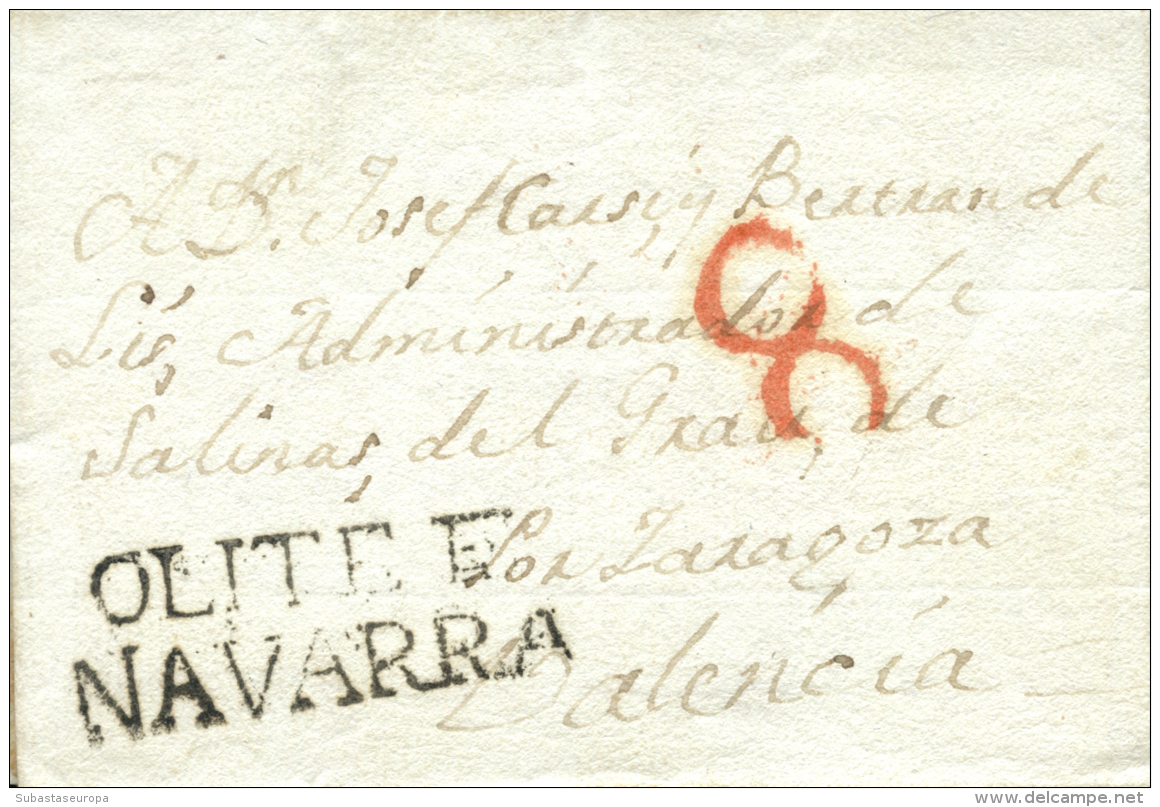 A Dn. Josef Carsi, y Bertran de
Lis, Administrador de
Salinas, del Grau, de
Por Zaragoza
Valencia
8
OLITE E
NAVARRA
Subastaseuropa
www.delcampe.net